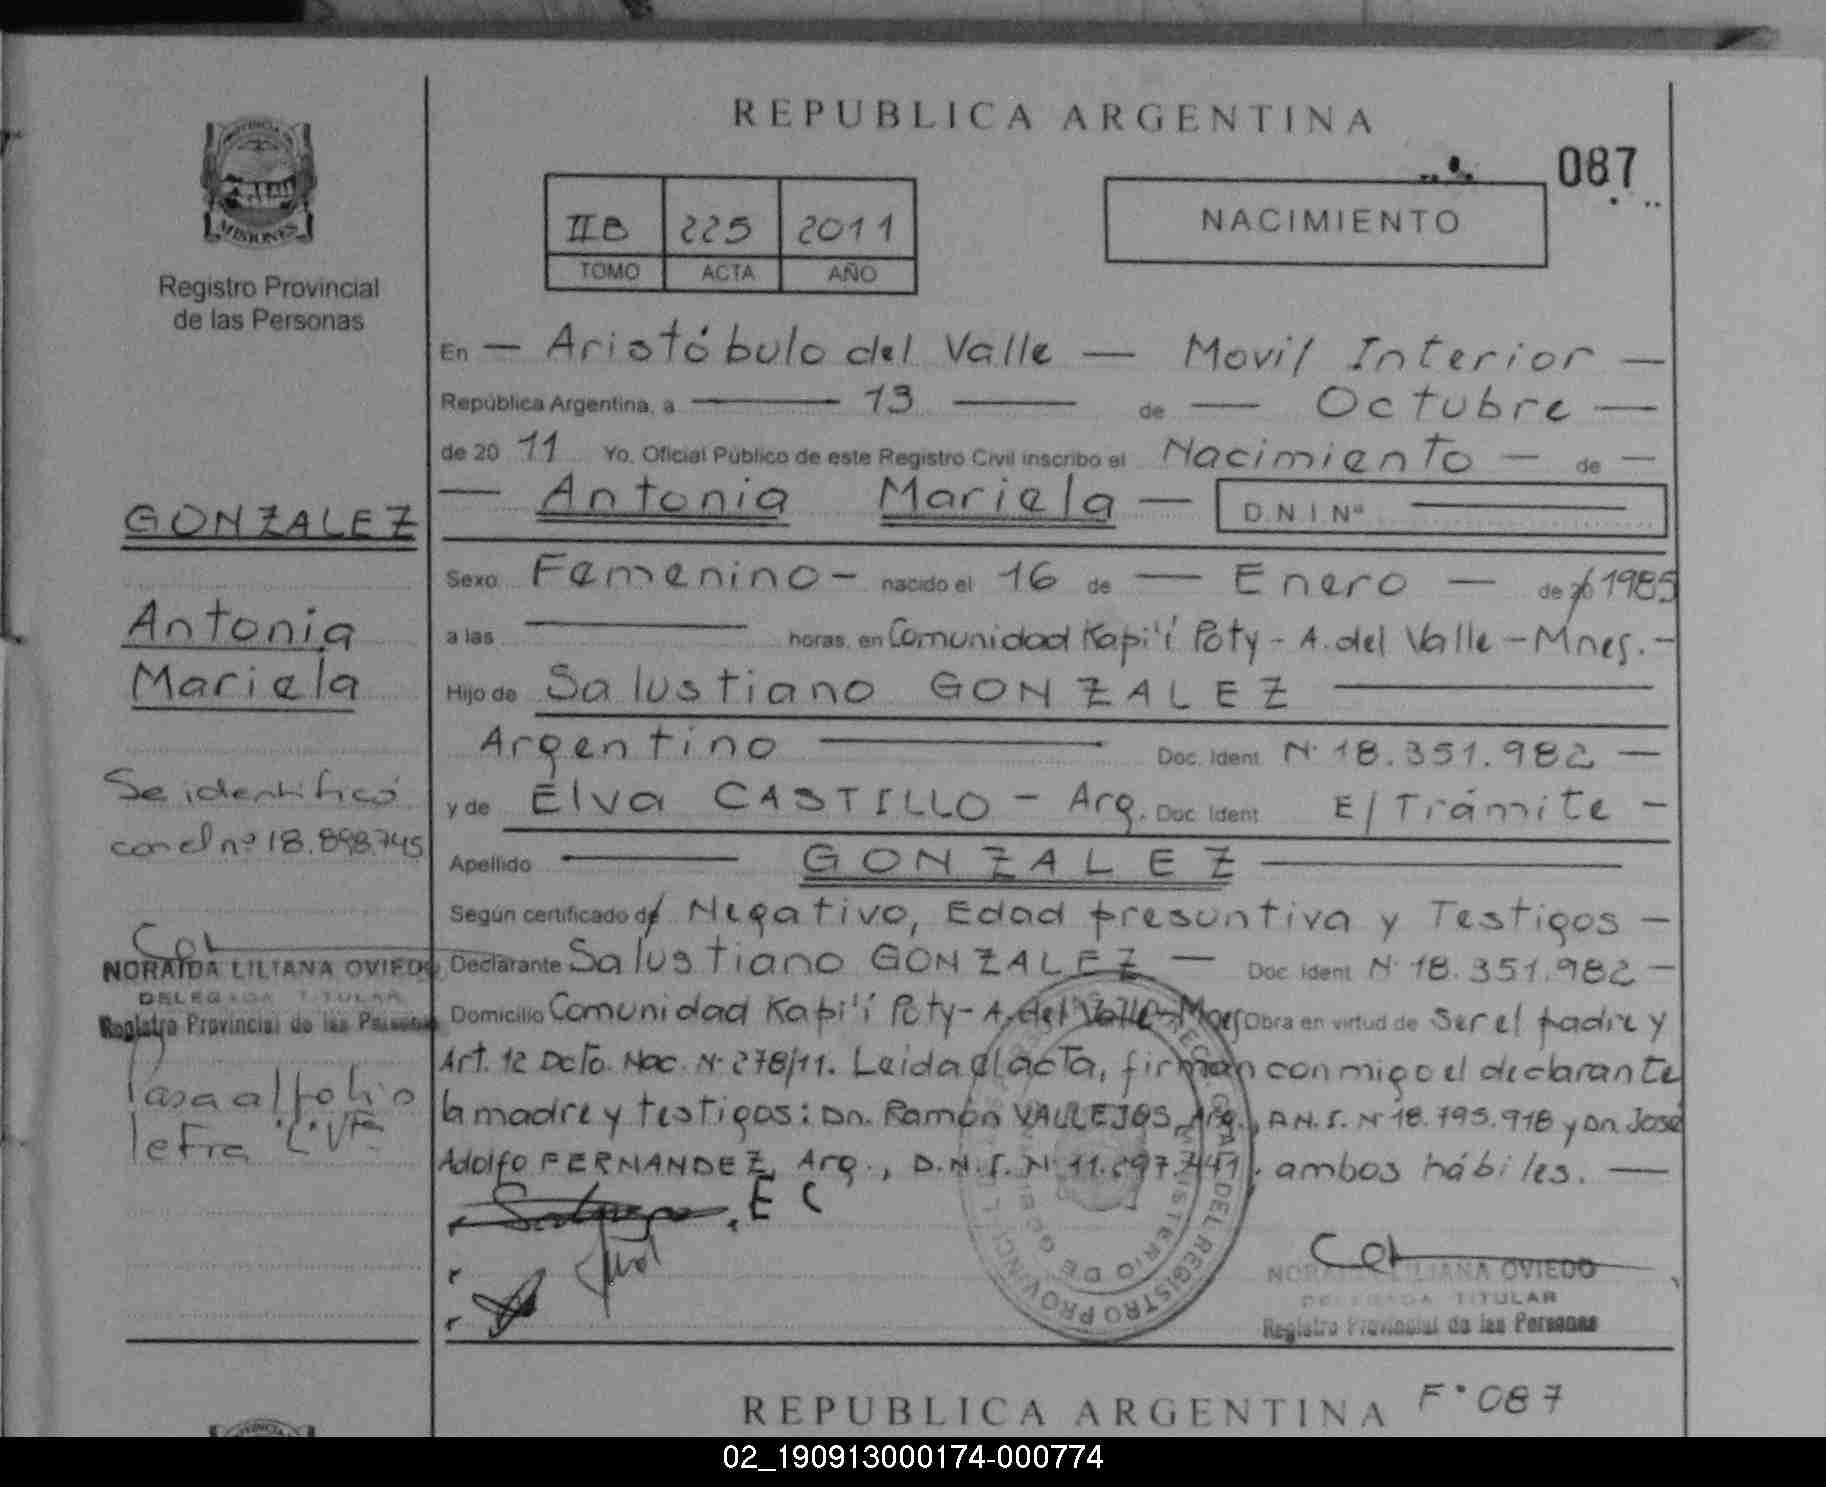 REPUBLICA ARGENTINA
087
PROVINCIA DE
MISIONES
Registro Provincial
de las Personas
IIB 225 2011
TOMO ACTA AÑO
NACIMIENTO
En — Aristóbulo del Valle — Movil Interior —
República Argentina, a — 13 — de — Octubre —
de 20 11 Yo, Oficial Público de este Registro Civil inscribo el Nacimiento — de —
— Antonia Mariela — D.N.I. Nº —
GONZALEZ
Antonia
Mariela
Sexo Femenino - nacido el 16 de — Enero — de 20 1985
a las — horas, en Comunidad Kapi'í Poty - A. del Valle - Mnes. -
Hijo de Salustiano GONZALEZ —
Argentino — Doc. Ident. Nº 18.351.982 —
y de Elva CASTILLO - Arg. Doc. Ident. E/Trámite -
Apellido — GONZALEZ —
Según certificado de Negativo, Edad presuntiva y Testigos -
Declarante Salustiano GONZALEZ — Doc. Ident. Nº 18.351.982 -
Domicilio Comunidad Kapi'í Poty - A. del Valle - Mnes Obra en virtud de ser el padre y
Art. 12 Dcto. Nac. Nº 278/11. Leída el acta, firman conmigo el declarante
la madre y testigos: Dn. Ramón VALLEJOS, Arg., D.N.I. Nº 18.795.918 y Dn. José
Adolfo FERNANDEZ, Arg., D.N.I. Nº 11.297.741. ambos hábiles. —
E C
Se identificó
con el nº 18.898.745
NORAIDA LILIANA OVIEDO
DELEGADA TITULAR
Registro Provincial de las Personas
Pasa al folio
letra
REGISTRO PROVINCIAL
MINISTERIO DE GOBIERNO
NORAIDA LILIANA OVIEDO
DELEGADA TITULAR
Registro Provincial de las Personas
REPUBLICA ARGENTINA
Fº 087
02_190913000174-000774